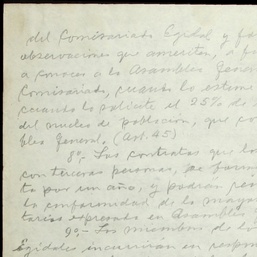 del Comisariado Ejidal y
observaciones que ameriten,
a conocer a la Asamblea General
Comisariado, cuando lo estime
cuando lo solicite el 25% de
del nucleo de poblacion, que
blea General. (Art. 45)
8º.- Los contratos que
con terceras personas, se
ta por un año, y podran
la conformidad de la
tarios expresada en Asamblea
9º.- Los miembros de
Ejidales incurriran en